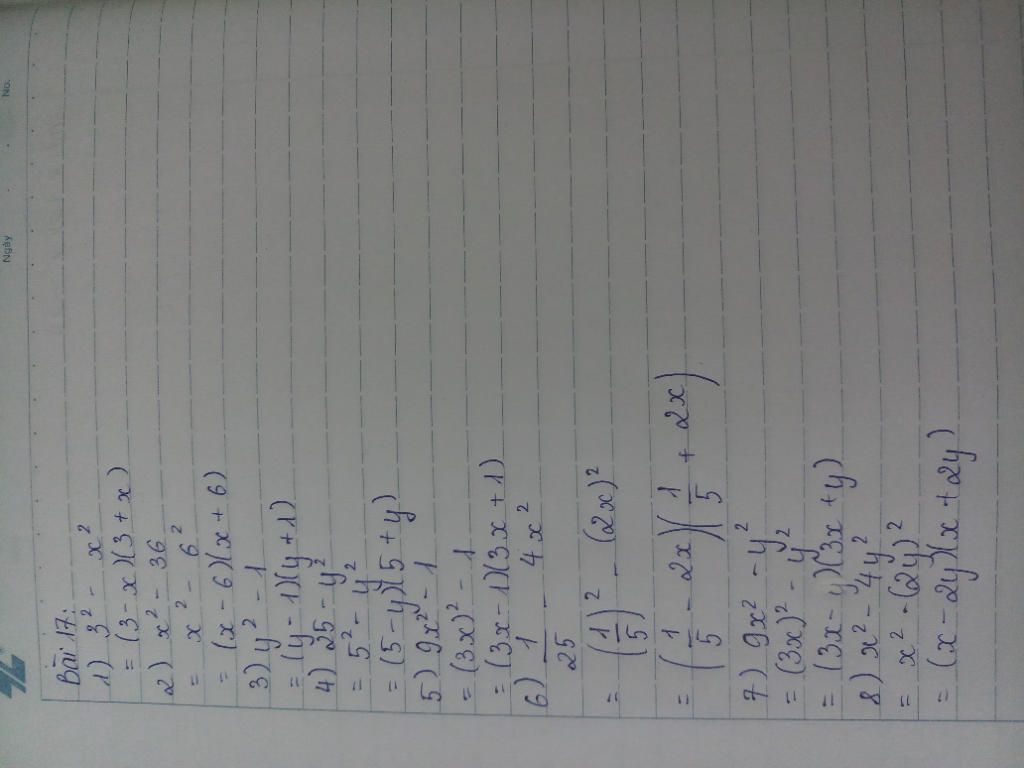 Ngày
No.
Bài 17:
1) 3² - x²
= (3 - x)(3 + x)
2) x² - 36
= x² - 6²
= (x - 6)(x + 6)
3) y² - 1
= (y - 1)(y + 1)
4) 25 - y²
= 5² - y²
= (5 - y)(5 + y)
5) 9x² - 1
= (3x)² - 1
= (3x - 1)(3x + 1)
6) 1/25 - 4x²
= (1/5)² - (2x)²
= (1/5 - 2x)(1/5 + 2x)
7) 9x² - y²
= (3x)² - y²
= (3x - y)(3x + y)
8) x² - 4y²
= x² - (2y)²
= (x - 2y)(x + 2y)